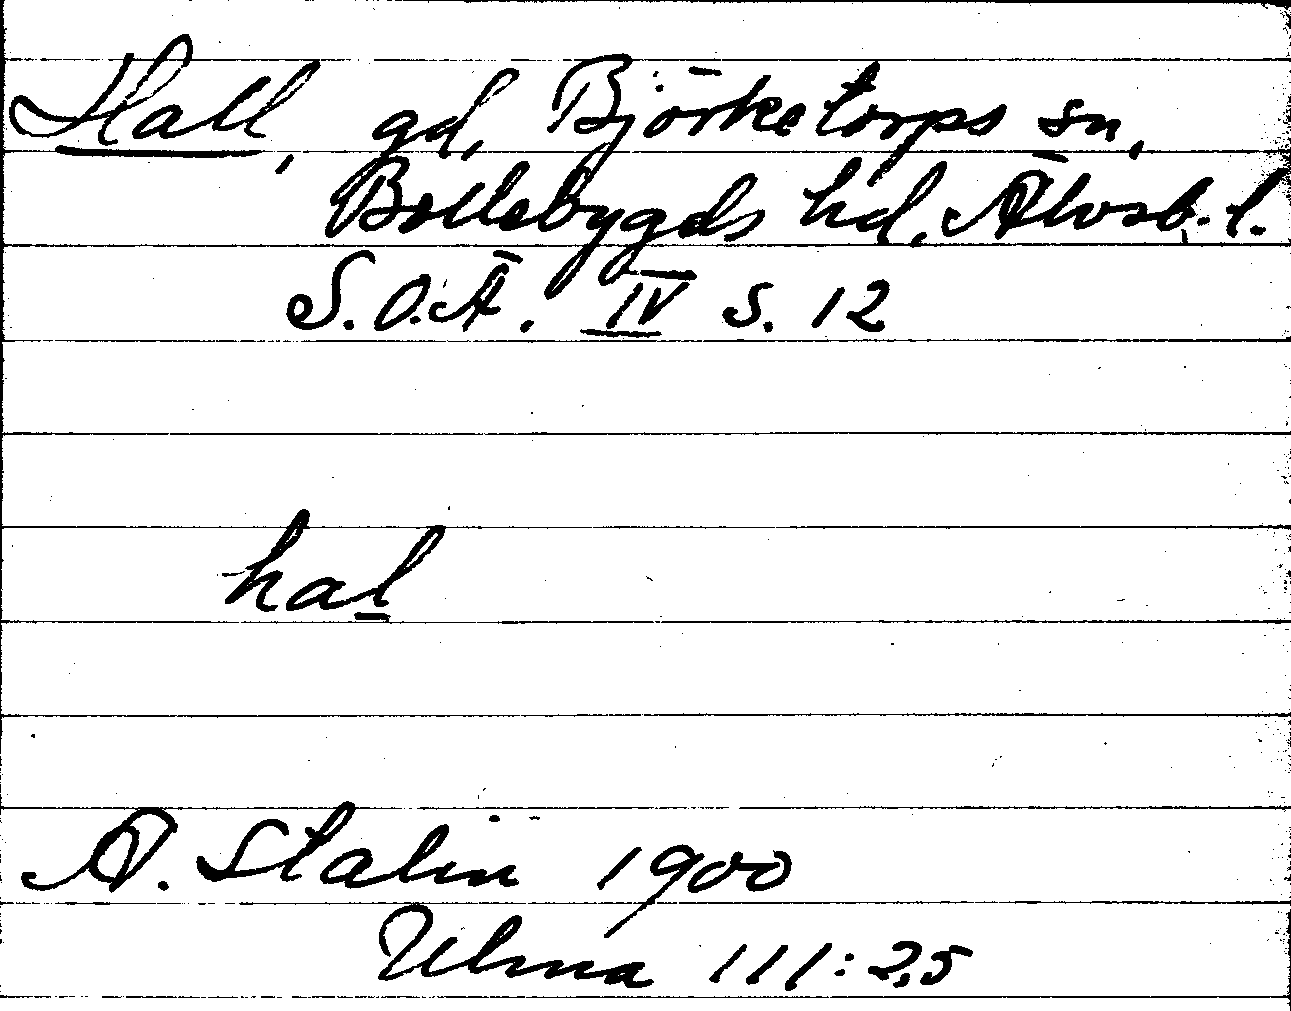 Hall, gd, Björketorps sn,
Bollebygds hd. Älvsb. l.
S.O.Ä. IV s. 12
hal
A. Stalin 1900
Ulma 111:25